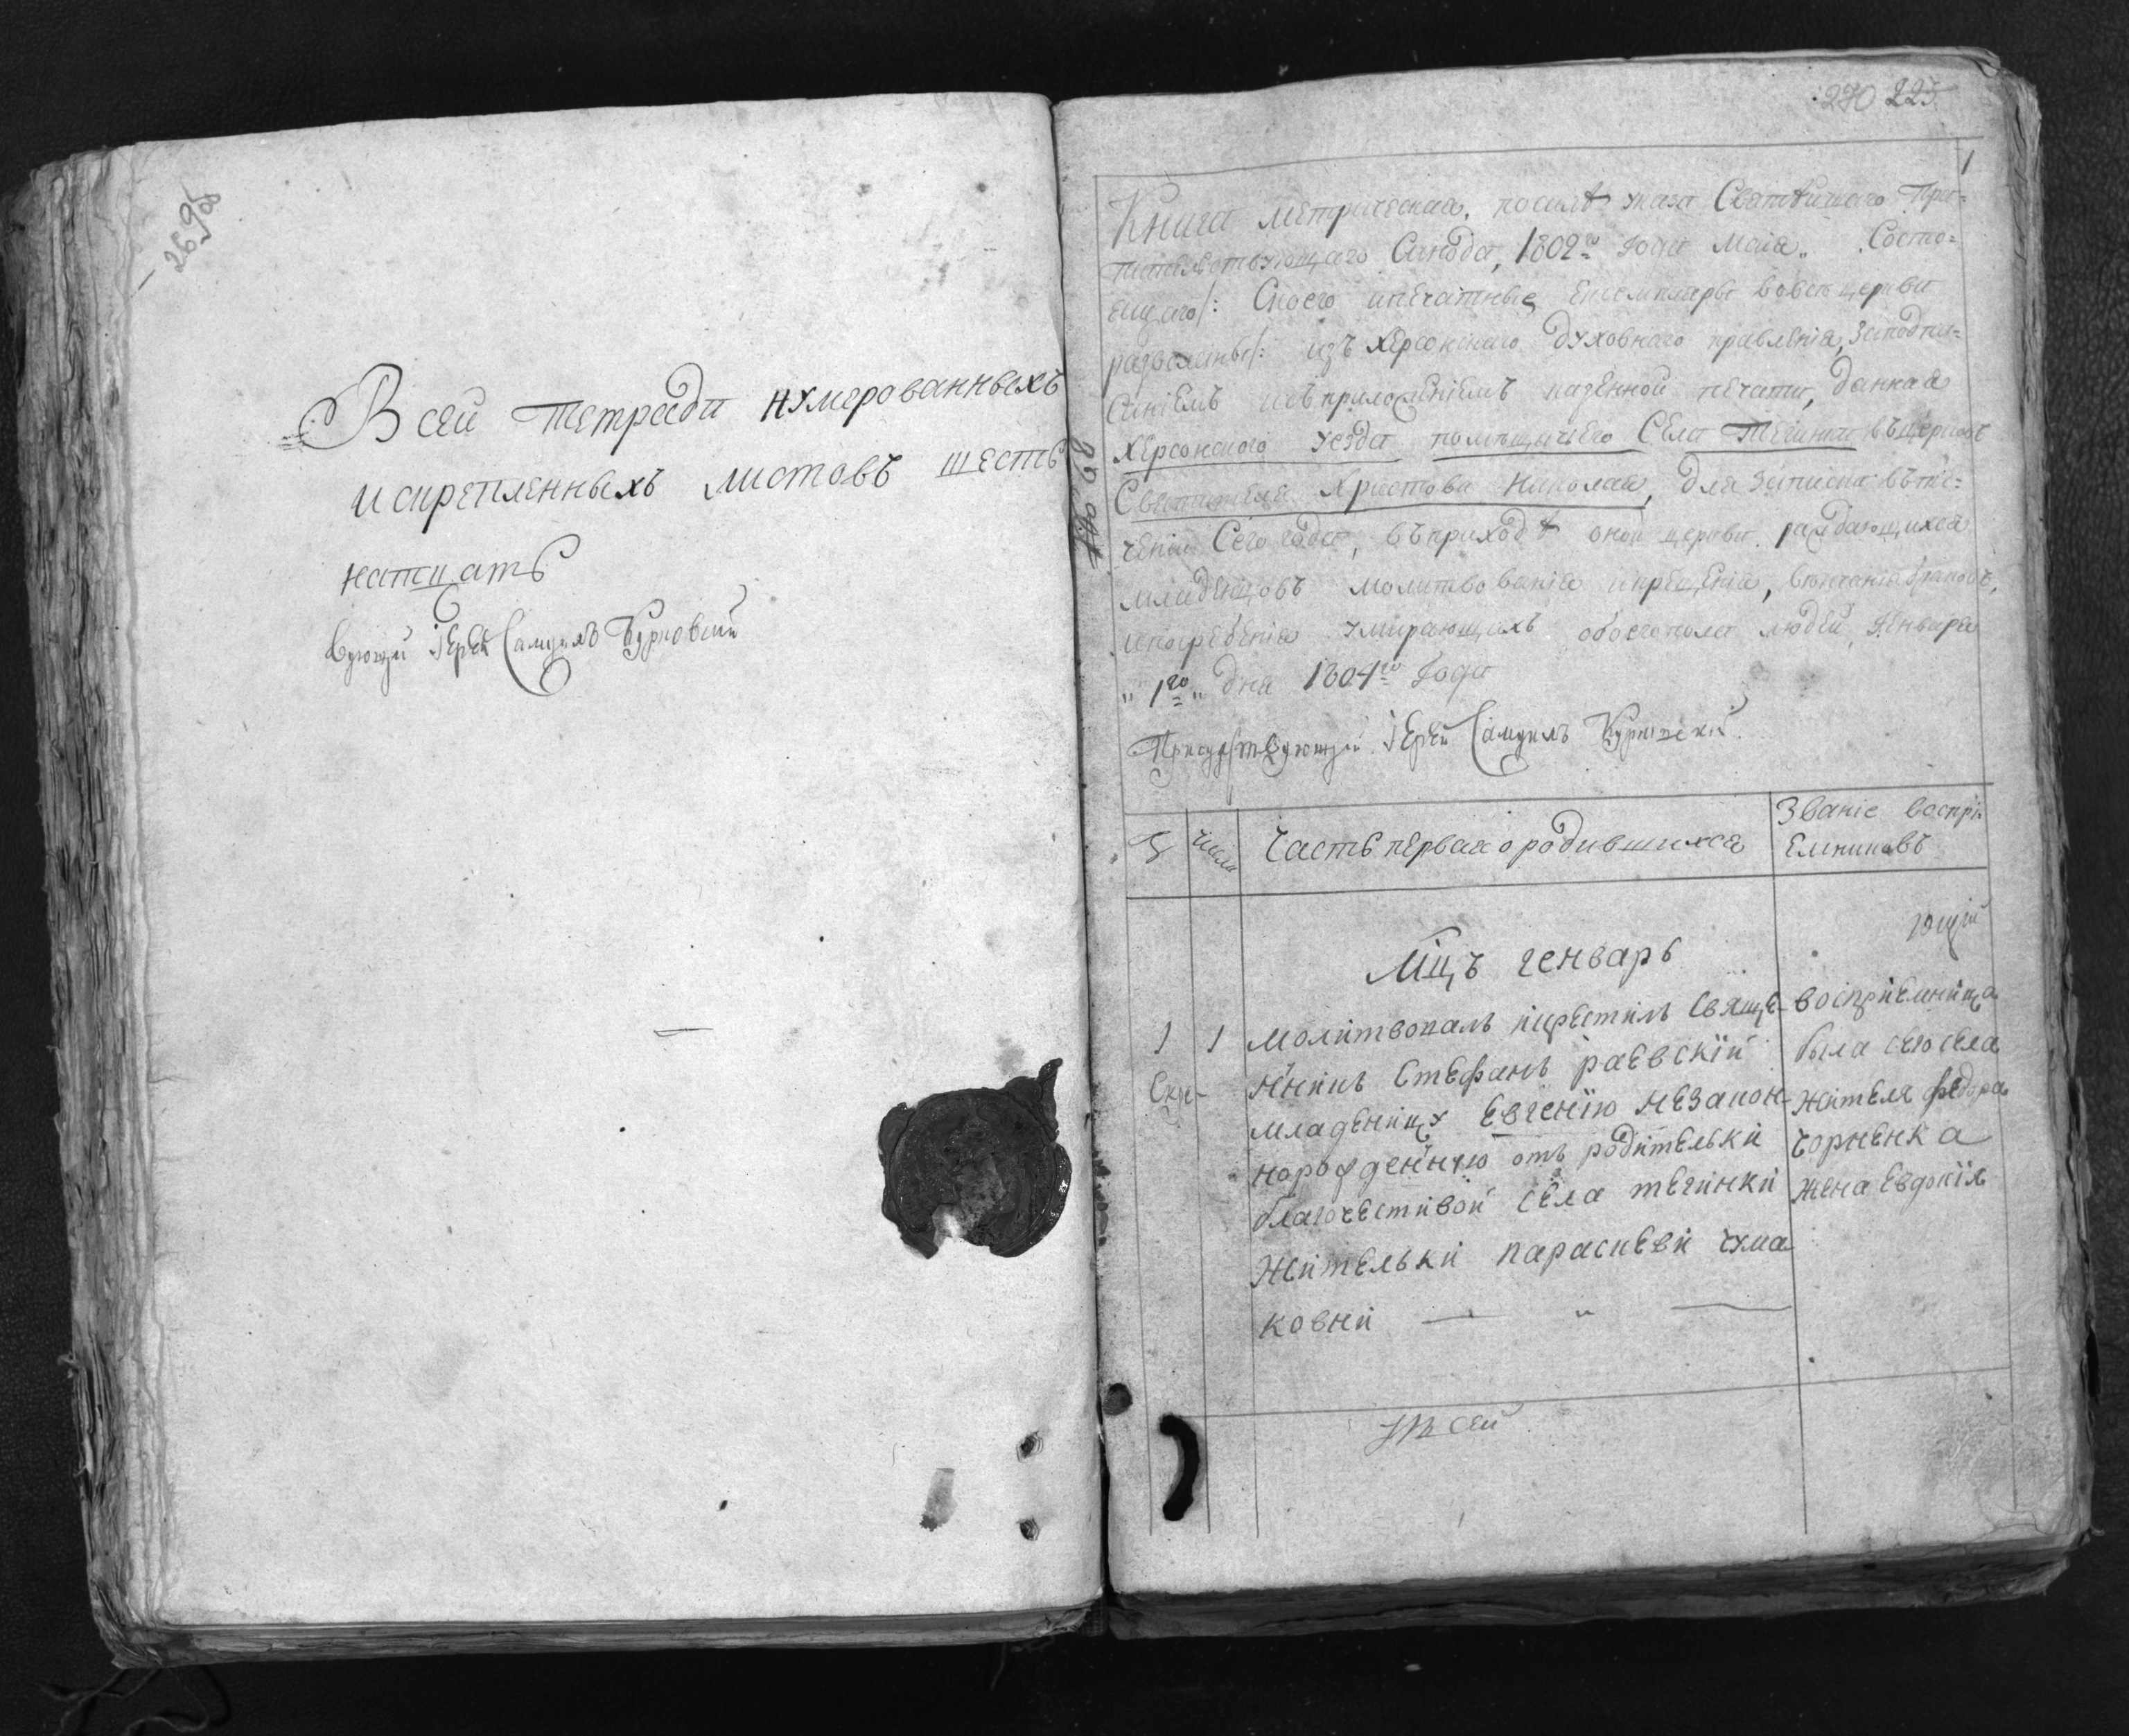 269об
Всей тетради нумерованныхъ
и скрепленныхъ листовъ шесть
натцать
вующи іерей Самуилъ Курковский
225
1
Книга метрическая, по силѣ указа Святѣйшаго Пра-
вительствующаго Синода, 1802го года Маія „ Состо-
явшаго/: Съ коего и печатные екземпляры во всѣ церкви
разосланы/: изъ Херсонскаго духовнаго правленія, за подпи-
саніемъ и съ приложеніемъ казенной печати, данная
Херсонского уезда помещичего Села Тегинки въ церковь
Святителя Христова Николая, для записки въ те-
ченіи Сего года, въ приходѣ оной церкви раждающихся
младенцовъ молитвованія и крещенія, венчанія браковъ,
и погребенія умирающихъ обоего пола людей, Генваря
„ 1го „ дня 1804го Года
Присудствующій іерей Самуилъ Курковскій
числа
Часть первая о родившихся
Званіе воспрі-
емниковъ
ющій
Мцъ генварь
1 1 молитвовалъ и крестилъ свяще-
нникъ Стефанъ раевскій
младеницу Евгению незакон-
норожденную отъ родителки
благочестивой села тегинки
жителки параскеви чума
ковни — „ —
восприемница
была сего села
жителя федора
чорненка
жена Евдокия
Скре-